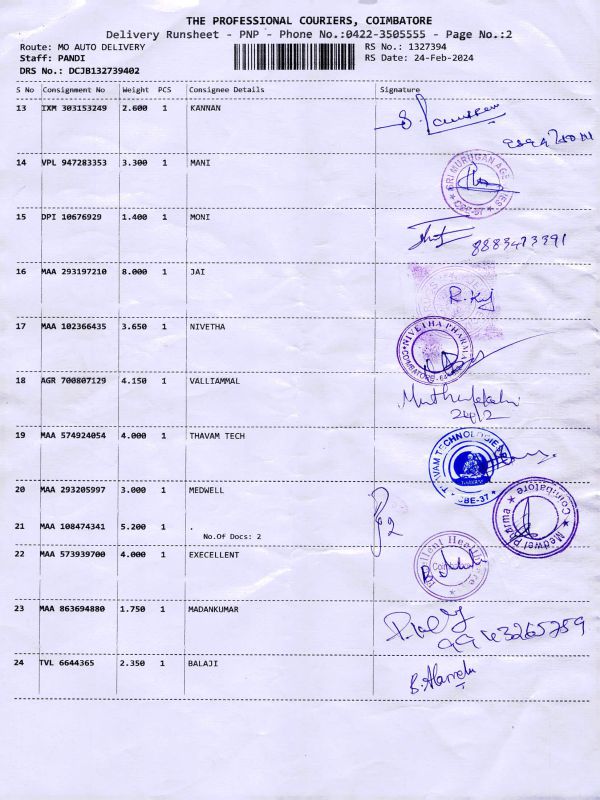 THE PROFESSIONAL COURIERS, COIMBATORE
Delivery Runsheet - PNP - Phone No.:0422-3505555 - Page No.:2
Route: MO AUTO DELIVERY RS No.: 1327394
Staff: PANDI RS Date: 24-Feb-2024
DRS No.: DCJB132739402
S No Consignment No Weight PCS Consignee Details Signature
13 IXM 303153249 2.600 1 KANNAN
14 VPL 947283353 3.300 1 MANI
SRI MURUGAN AGENCIES CBE-37
15 DPI 10676929 1.400 1 MONI
8883473391
16 MAA 293197210 8.000 1 JAI
17 MAA 102366435 3.650 1 NIVETHA
NIVETHA PHARMA
18 AGR 700807129 4.150 1 VALLIAMMAL
24/2
19 MAA 574924054 4.000 1 THAVAM TECH
THAVAM TECHNOLOGIES CBE-37
20 MAA 293205997 3.000 1 MEDWELL
Medwel Pharma Coimbatore
21 MAA 108474341 5.200 1 .
No.Of Docs: 2
22 MAA 573939700 4.000 1 EXECELLENT
23 MAA 863694880 1.750 1 MADANKUMAR
24 TVL 6644365 2.350 1 BALAJI